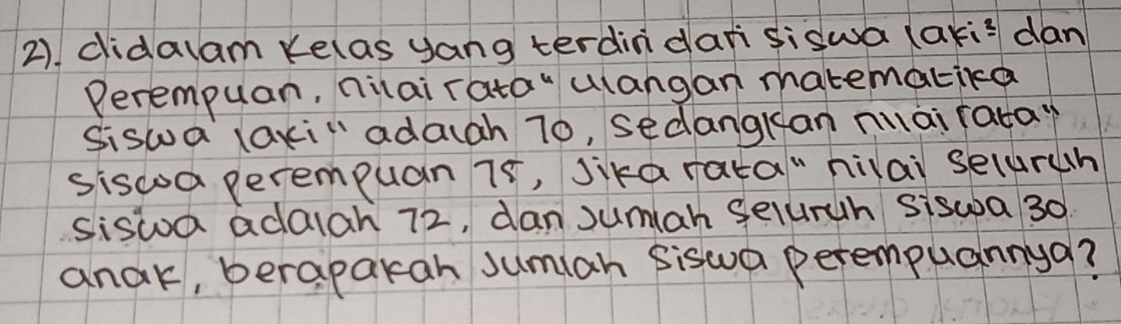 2). didalam kelas yang terdiri dari siswa laki² dan
Perempuan, nilai rata" ulangan matematika
siswa laki" adalah 70, sedangkan nilai rata"
siswa perempuan 75, Jika rata" nilai seluruh
siswa adalah 72, dan Jumlah seluruh siswa 30
anak, berapakah Jumlah siswa perempuannya?